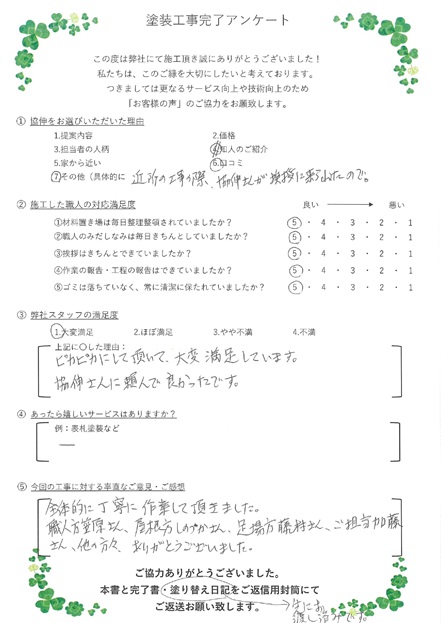 塗装工事完了アンケート
この度は弊社にて施工頂き誠にありがとうございました！
私たちは、このご縁を大切にしたいと考えております。
つきましては更なるサービス向上や技術向上のため
「お客様の声」のご協力をお願致します。
① 協伸をお選びいただいた理由
1.提案内容 2.価格
3.担当者の人柄 4.知人のご紹介
5.家から近い 6.口コミ
⑦その他（具体的に 近所の工事の際、協伸さんが挨拶に来られたので。
② 施工した職人の対応満足度 良い → 悪い
①材料置き場は毎日整理整頓されていましたか？ 5 ・ 4 ・ 3 ・ 2 ・ 1
②職人のみだしなみは毎日きちんとしていましたか？ 5 ・ 4 ・ 3 ・ 2 ・ 1
③挨拶はきちんとできていましたか？ 5 ・ 4 ・ 3 ・ 2 ・ 1
④作業の報告・工程の報告はできていましたか？ 5 ・ 4 ・ 3 ・ 2 ・ 1
⑤ゴミは落ちていなく、常に清潔に保たれていましたか？ 5 ・ 4 ・ 3 ・ 2 ・ 1
③ 弊社スタッフの満足度
1.大変満足 2.ほぼ満足 3.やや不満 4.不満
上記に〇した理由：
ピカピカにして頂いて、大変満足しています。
協伸さんに頼んで良かったです。
④ あったら嬉しいサービスはありますか？
例：表札塗装など
—
⑤ 今回の工事に対する率直なご意見・ご感想
全体的に丁寧に作業して頂きました。
職人方笠原さん、屋根方しのづかさん、足場方藤村さん、ご担当加藤
さん、他の方々、ありがとうございました。
ご協力ありがとうございました。
本書と完了書・塗り替え日記をご返信用封筒にて
ご返送お願い致します。
→先にお
渡し済みです。